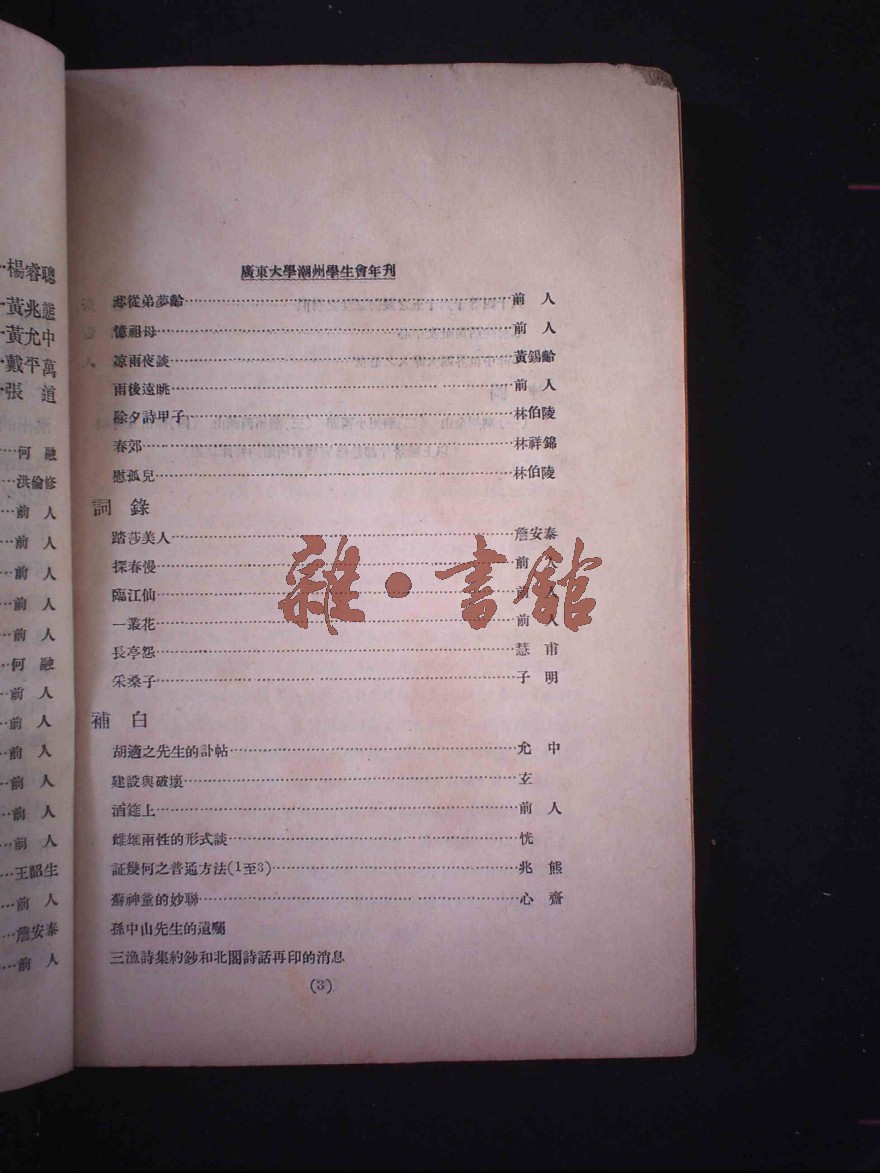 楊睿聰
黃兆熊
黃尤中
戴平萬
張 道
何 融
洪倫修
前 人
前 人
前 人
前 人
前 人
何 融
前 人
前 人
前 人
前 人
前 人
前 人
王韶生
前 人
詹安泰
前 人
廣東大學潮州學生會年刋
從弟夢齡……前 人
憶祖母……前 人
凉雨夜談……黃錫齡
雨後遠眺……前 人
除夕詩甲子……林伯陵
春郊……林祥錦
慰孤兒……林伯陵
詞 錄
踏莎美人……詹安泰
探春慢……前 人
臨江仙……前 人
一叢花……前 人
長亭怨……慧 甫
采桑子……子 明
補 白
胡適之先生的訃帖……允 中
建設與破壞……玄
酒筵上……前 人
雌雄兩性的形式談……恍
証幾何之普通方法(1至3)……兆 熊
蘇神童的妙聯……心 齋
孫中山先生的遺囑
三漁詩集約鈔和北閣詩話再印的消息
(3)
雜·書館